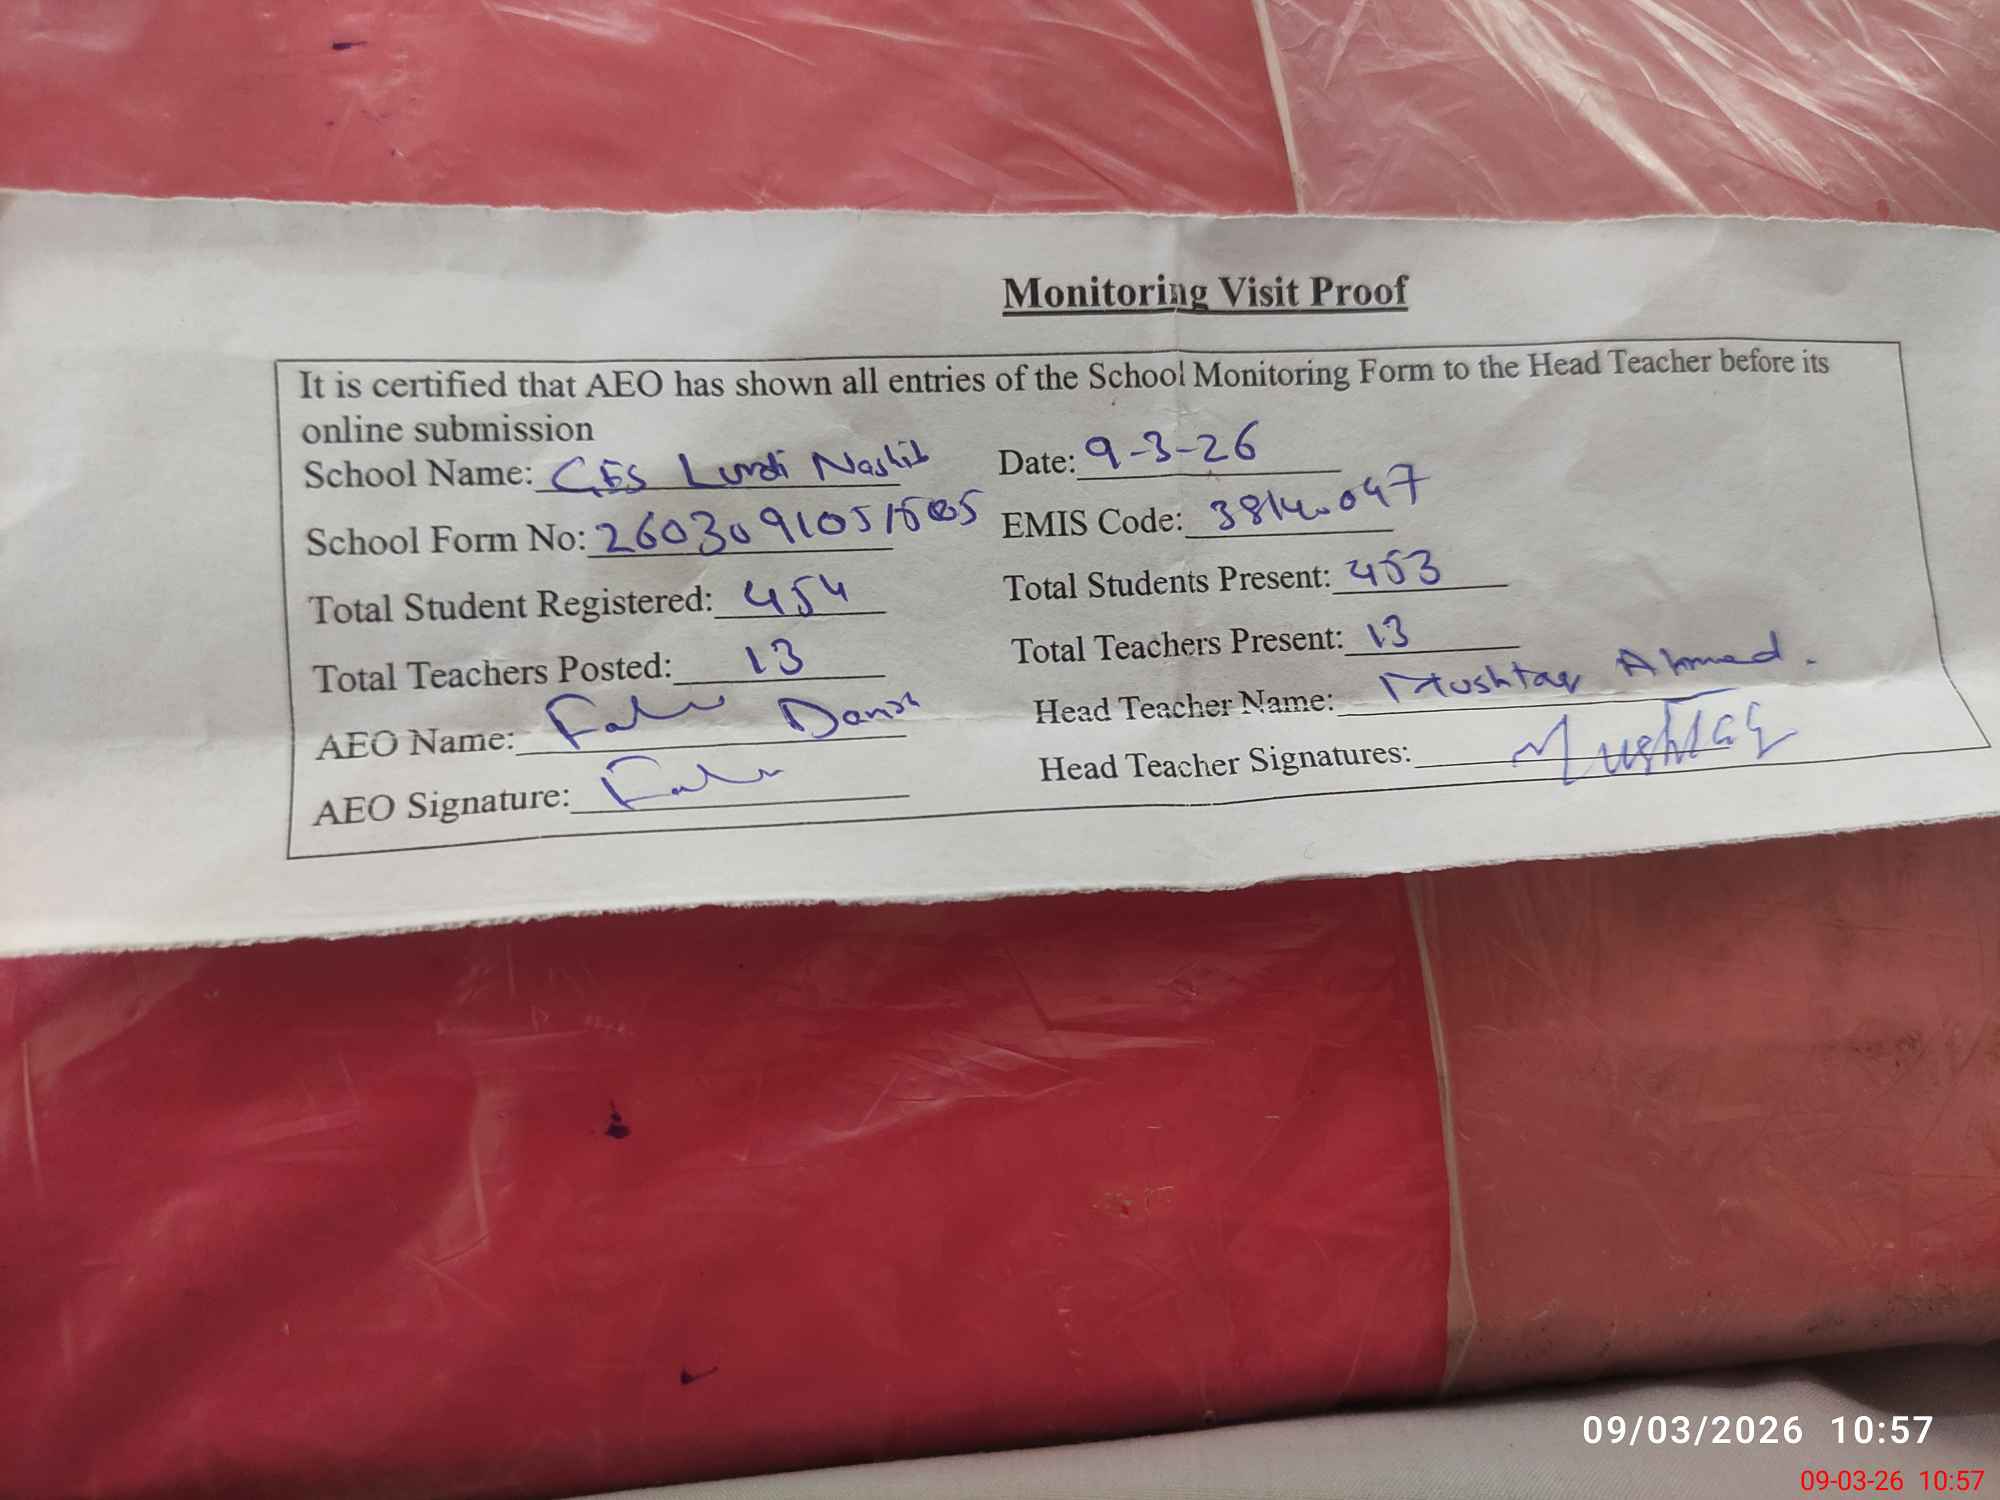 Monitoring Visit Proof
It is certified that AEO has shown all entries of the School Monitoring Form to the Head Teacher before its
online submission
School Name: GES Lundi Nashib Date: 9-3-26
School Form No: EMIS Code: 38140047
Total Student Registered: 454 Total Students Present: 453
Total Teachers Posted: 13 Total Teachers Present: 13
AEO Name: Danish Head Teacher Name: Mushtaq Ahmed.
AEO Signature: Head Teacher Signatures: Mushtaq
09/03/2026 10:57
09-03-26 10:57